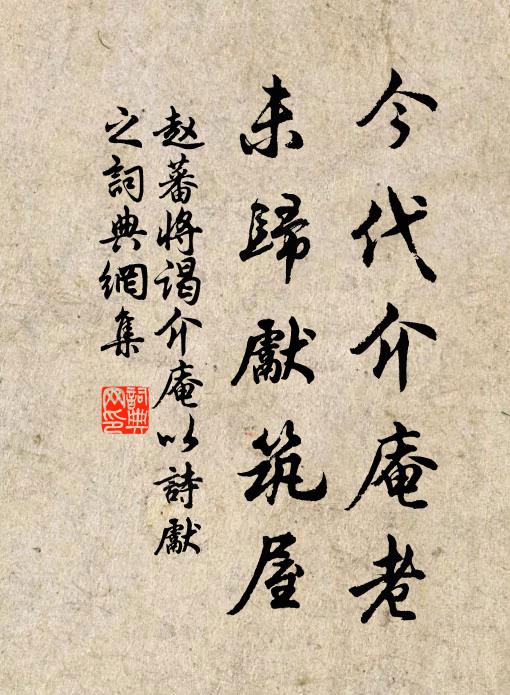 今代介庵老
未歸獻筑屋
赵蕃将谒介庵以詩獻
之詞典網集
詞典网印